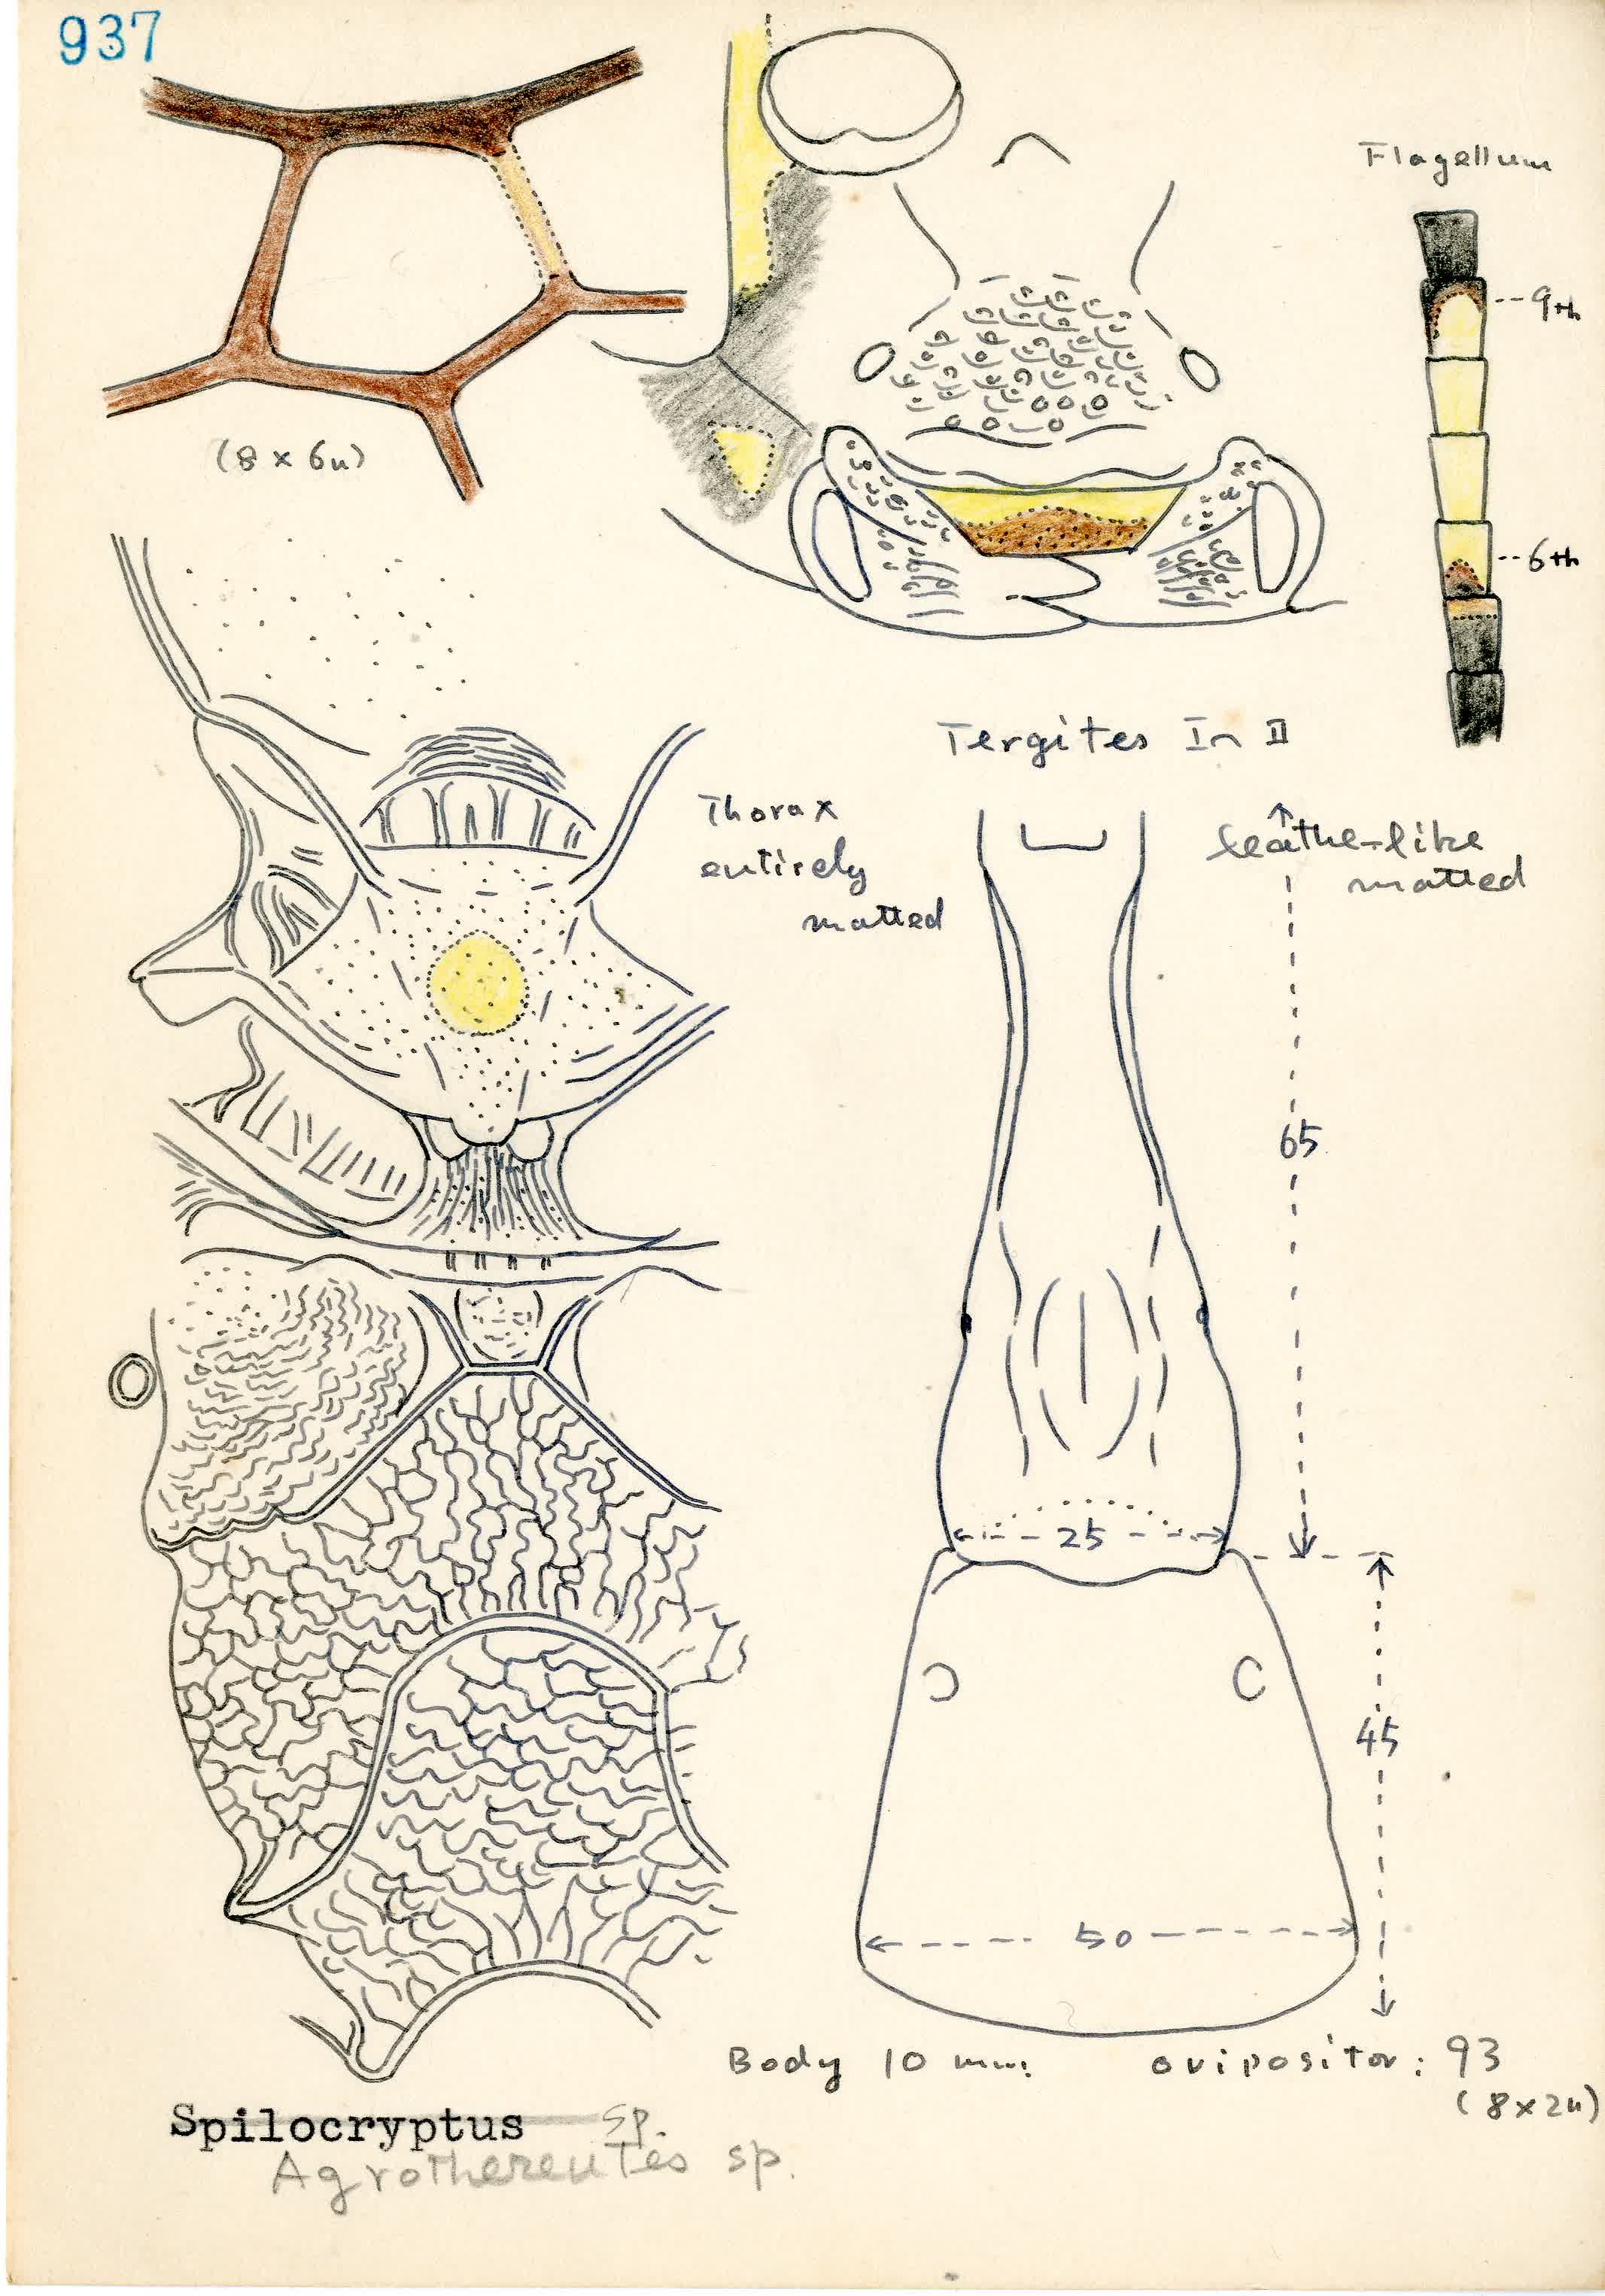 937
Flagellum
9th
(8 x 6u)
6th
Tergites In II
Thorax
entirely
matted
leathe-like
matted
65
25
45
50
Body 10 mm.
ovipositor: 93
(8x2u)
Spilocryptus sp.
Agrothereutes sp.